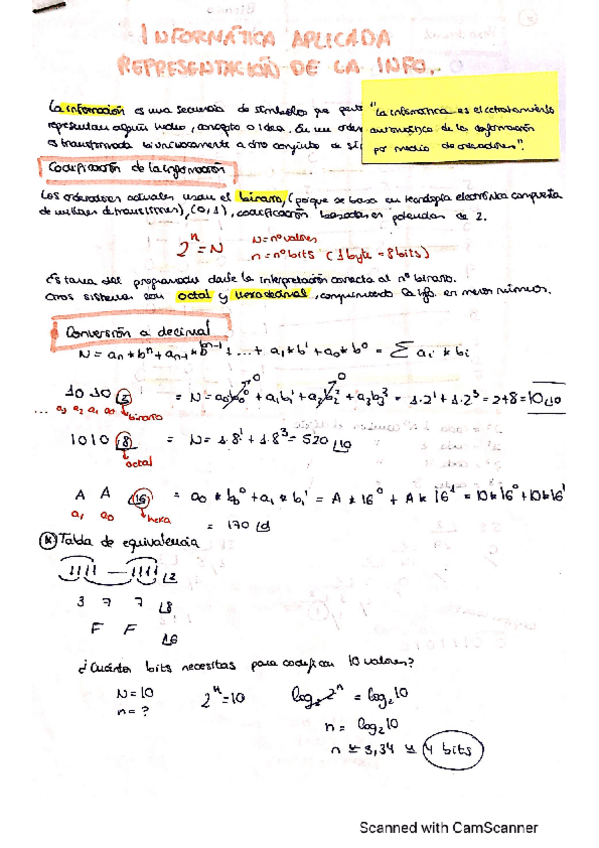 INFORMÁTICA APLICADA
REPRESENTACIÓN DE LA INFO.
La información es una secuencia de símbolos que
representan algún hecho, concepto o idea. En un
es transformada biunívocamente a otro conjunto de
"La informática es el tratamiento
automático de la información
por medio de ordenadores".
Codificación de la información
Los ordenadores actuales usan el binario, (porque se basa en tecnología electrónica compuesta
de millones de transistores), (0,1), codificación basada en potencias de 2.
2^n = N
N = nº valores
n = nº bits (1 byte = 8 bits)
Es tarea del programador darle la interpretación correcta al nº binario.
Otros sistemas son octal y hexadecimal, comprimiendo la info. en menor número.
Conversión a decimal
N = an * b^n + an-1 * b^n-1 + ... + a1 * b^1 + a0 * b^0 = Σ ai * bi
1010 2 = N = a0b0^0 + a1b1^1 + a2b2^2 + a3b3^3 = 1·2^1 + 1·2^3 = 2+8 = 10 10
... a3 a2 a1 a0 binario
1010 8 = N = 1·8^1 + 1·8^3 = 520 10
octal
A A 16 = a0 * b0^0 + a1 * b1^1 = A * 16^0 + A * 16^1 = 10*16^0 + 10*16^1
a1 a0 hexa
= 170 d
* Tabla de equivalencia
1111 — 1111 2
3 7 7 8
F F 16
¿Cuántos bits necesitas para codificar 10 valores?
N = 10
n = ?
2^n = 10
log2 2^n = log2 10
n = log2 10
n ≃ 3,34 ≃ 4 bits
Scanned with CamScanner